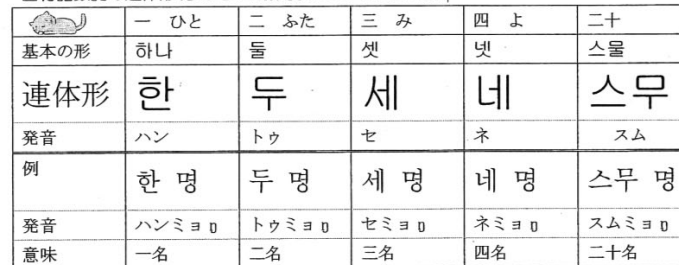 一 ひと 二 ふた 三 み 四 よ 二十
基本の形 하나 둘 셋 넷 스물
連体形 한 두 세 네 스무
発音 ハン トゥ セ ネ スム
例 한 명 두 명 세 명 네 명 스무 명
発音 ハンミョロ トゥミョロ セミョロ ネミョロ スムミョロ
意味 一名 二名 三名 四名 二十名